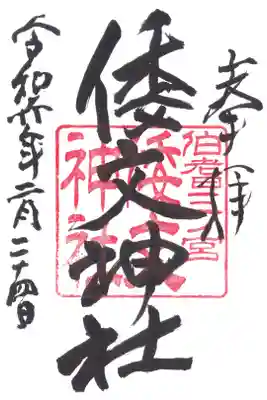 奉拝
倭文神社
令和年二月二十四日
伯耆三ノ宮
倭文
神社